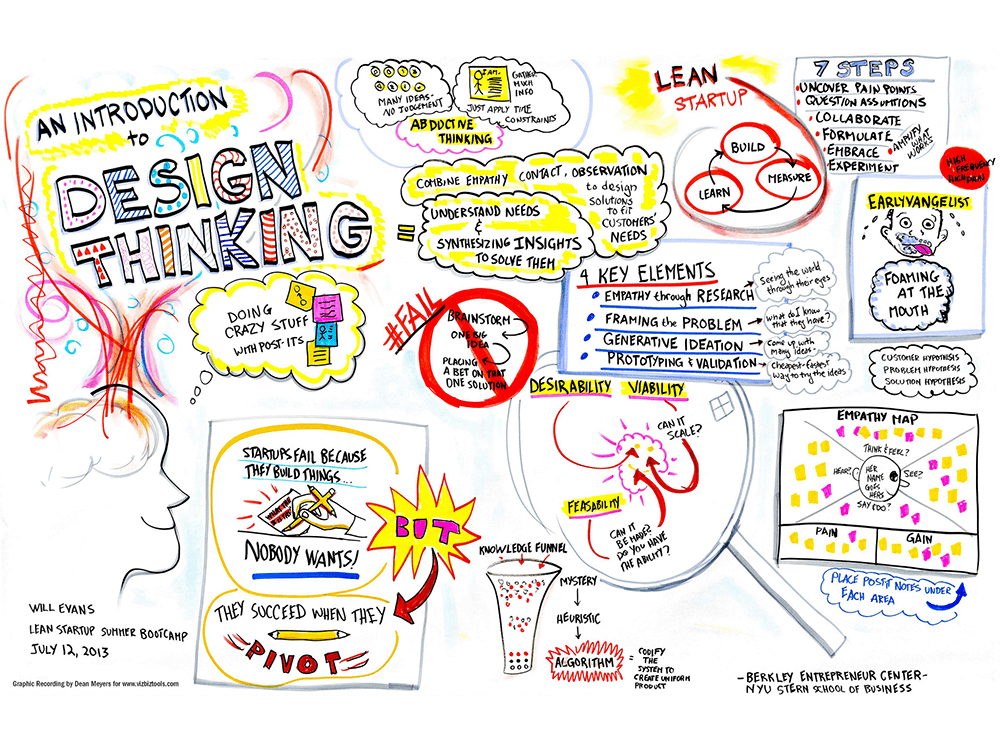 AN INTRODUCTION
to
DESIGN
THINKING
=
COMBINE EMPATHY CONTACT, OBSERVATION
to design
solutions
to fit
CUSTOMERS'
NEEDS
UNDERSTAND NEEDS
&
SYNTHESIZING INSIGHTS
TO SOLVE THEM
MANY IDEAS-
NO JUDGEMENT
I AM.
GATHER
MUCH
INFO
JUST APPLY TIME
CONSTRAINTS
ABDUCTIVE
THINKING
LEAN
STARTUP
BUILD
MEASURE
LEARN
7 STEPS
UNCOVER PAIN POINTS
QUESTION ASSUMPTIONS
COLLABORATE
FORMULATE
EMBRACE
EXPERIMENT
AMPLIFY
WHAT
WORKS
HIGH
FREQUENCY
HIGH PAIN
EARLYVANGELIST
FOAMING
AT THE
MOUTH
DOING
CRAZY STUFF
WITH POST-ITS
#FAIL
BRAINSTORM
ONE BIG
IDEA
PLACING
A BET ON THAT
ONE SOLUTION
4 KEY ELEMENTS
EMPATHY through RESEARCH
FRAMING the PROBLEM
GENERATIVE IDEATION
PROTOTYPING & VALIDATION
Seeing the world
through their eyes
What do I know
that they have?
Come up with
many ideas!
Cheapest-fastest
way to try the ideas
CUSTOMER HYPOTHESIS
PROBLEM HYPOTHESIS
SOLUTION HYPOTHESIS
DESIRABILITY VIABILITY
CAN IT
SCALE?
FEASABILITY
CAN IT
BE MADE?
DO YOU HAVE
THE ABILITY?
EMPATHY MAP
THINK & FEEL?
HEAR?
SEE?
HER
NAME
GOES
HERE
SAY/DO?
PAIN
GAIN
PLACE POSTIT NOTES UNDER
EACH AREA
STARTUPS FAIL BECAUSE
THEY BUILD THINGS...
NOBODY WANTS!
BUT
THEY SUCCEED WHEN THEY
PIVOT
KNOWLEDGE FUNNEL
MYSTERY
HEURISTIC
ALGORITHM
= CODIFY
THE
SYSTEM TO
CREATE UNIFORM
PRODUCT
WILL EVANS
LEAN STARTUP SUMMER BOOTCAMP
JULY 12, 2013
Graphic Recording by Dean Meyers for www.vizbiztools.com
-BERKLEY ENTREPRENEUR CENTER-
NYU STERN SCHOOL OF BUSINESS